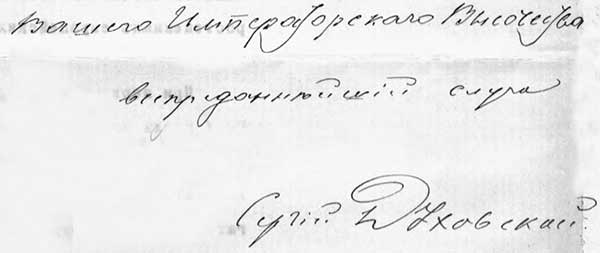 Вашего Императорскаго Высочества
всепреданнѣйшій слуга
Сергій Духовской